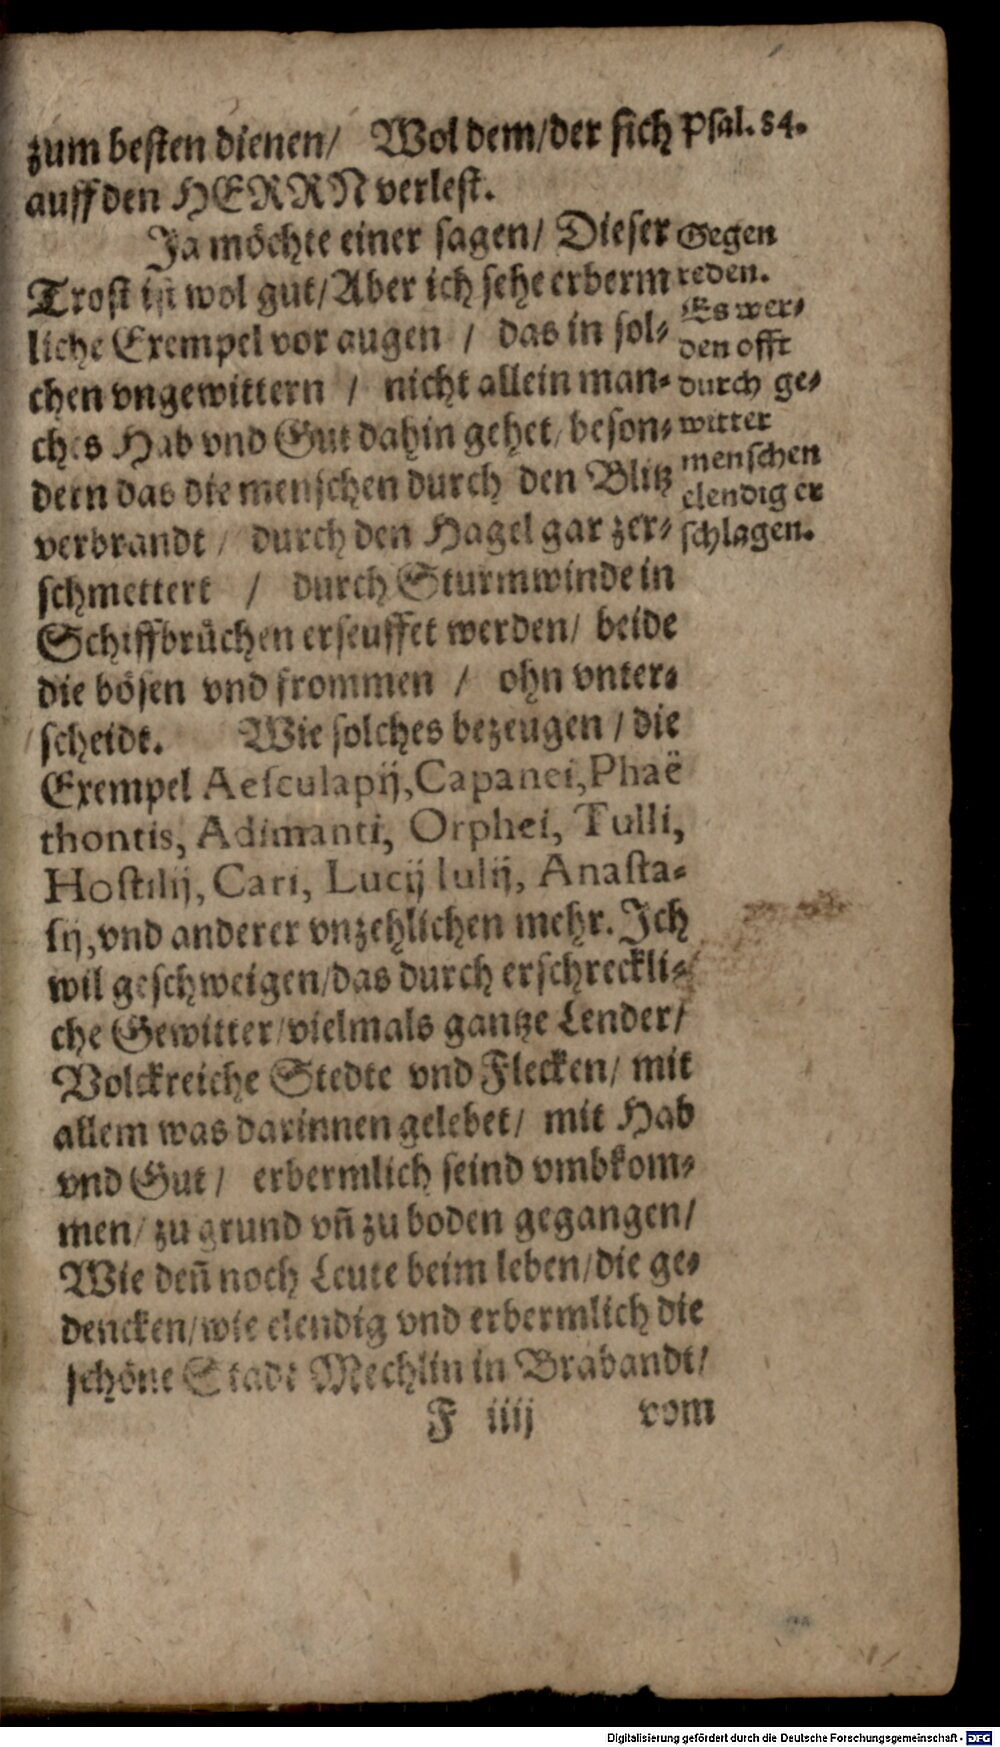 zum besten dienen/ Wol dem/der sich
auff den HERRN verlest.
Ja möchte einer sagen/ Dieser
Trost ist wol gut/Aber ich sehe erberm
liche Exempel vor augen / das in sol-
chen vngewittern / nicht allein man-
ches Hab vnd Gut dahin gehet/ beson-
dern das die menschen durch den Blitz
verbrandt / durch den Hagel gar zer-
schmettert / durch Sturmwinde in
Schiffbrüchen erseuffet werden/ beide
die bösen vnd frommen / ohn vnter-
scheidt. Wie solches bezeugen / die
Exempel Aesculapij, Capanei, Phaë
thontis, Adimanti, Orphei, Tulli,
Hostilij, Cari, Lucij Iulij, Anasta-
sij, vnd anderer vnzehlichen mehr. Ich
wil geschweigen/das durch erschreckli-
che Gewitter/vielmals gantze Lender/
Volckreiche Stedte vnd Flecken/ mit
allem was darinnen gelebet/ mit Hab
vnd Gut / erbermlich seind vmbkom-
men/ zu grund vn̄ zu boden gegangen/
Wie den̄ noch Leute beim leben/die ge-
dencken/wie elendig vnd erbermlich die
schöne Stadt Mechlin in Brabandt/
F iiij vom
Psal. 34.
Gegen
reden.
Es wer-
den offt
durch ge-
witter
menschen
elendig er
schlagen.
Digitalisierung gefördert durch die Deutsche Forschungsgemeinschaft - DFG